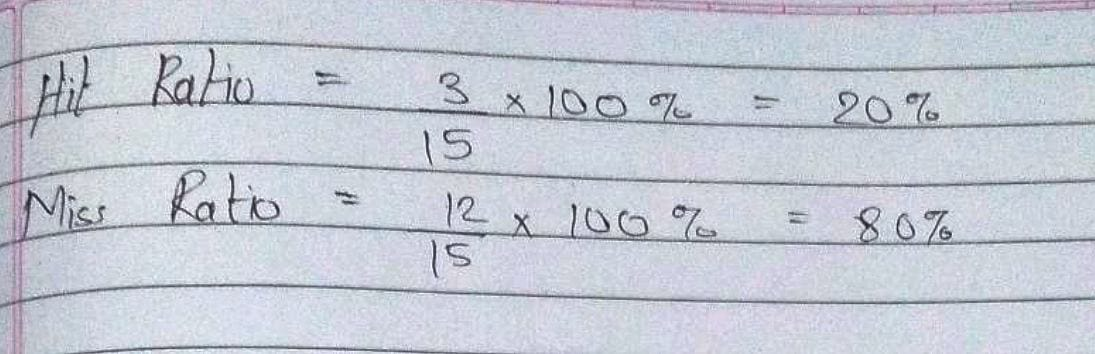 Hit Ratio = 3/15 × 100 % = 20%
Miss Ratio = 12/15 × 100 % = 80%